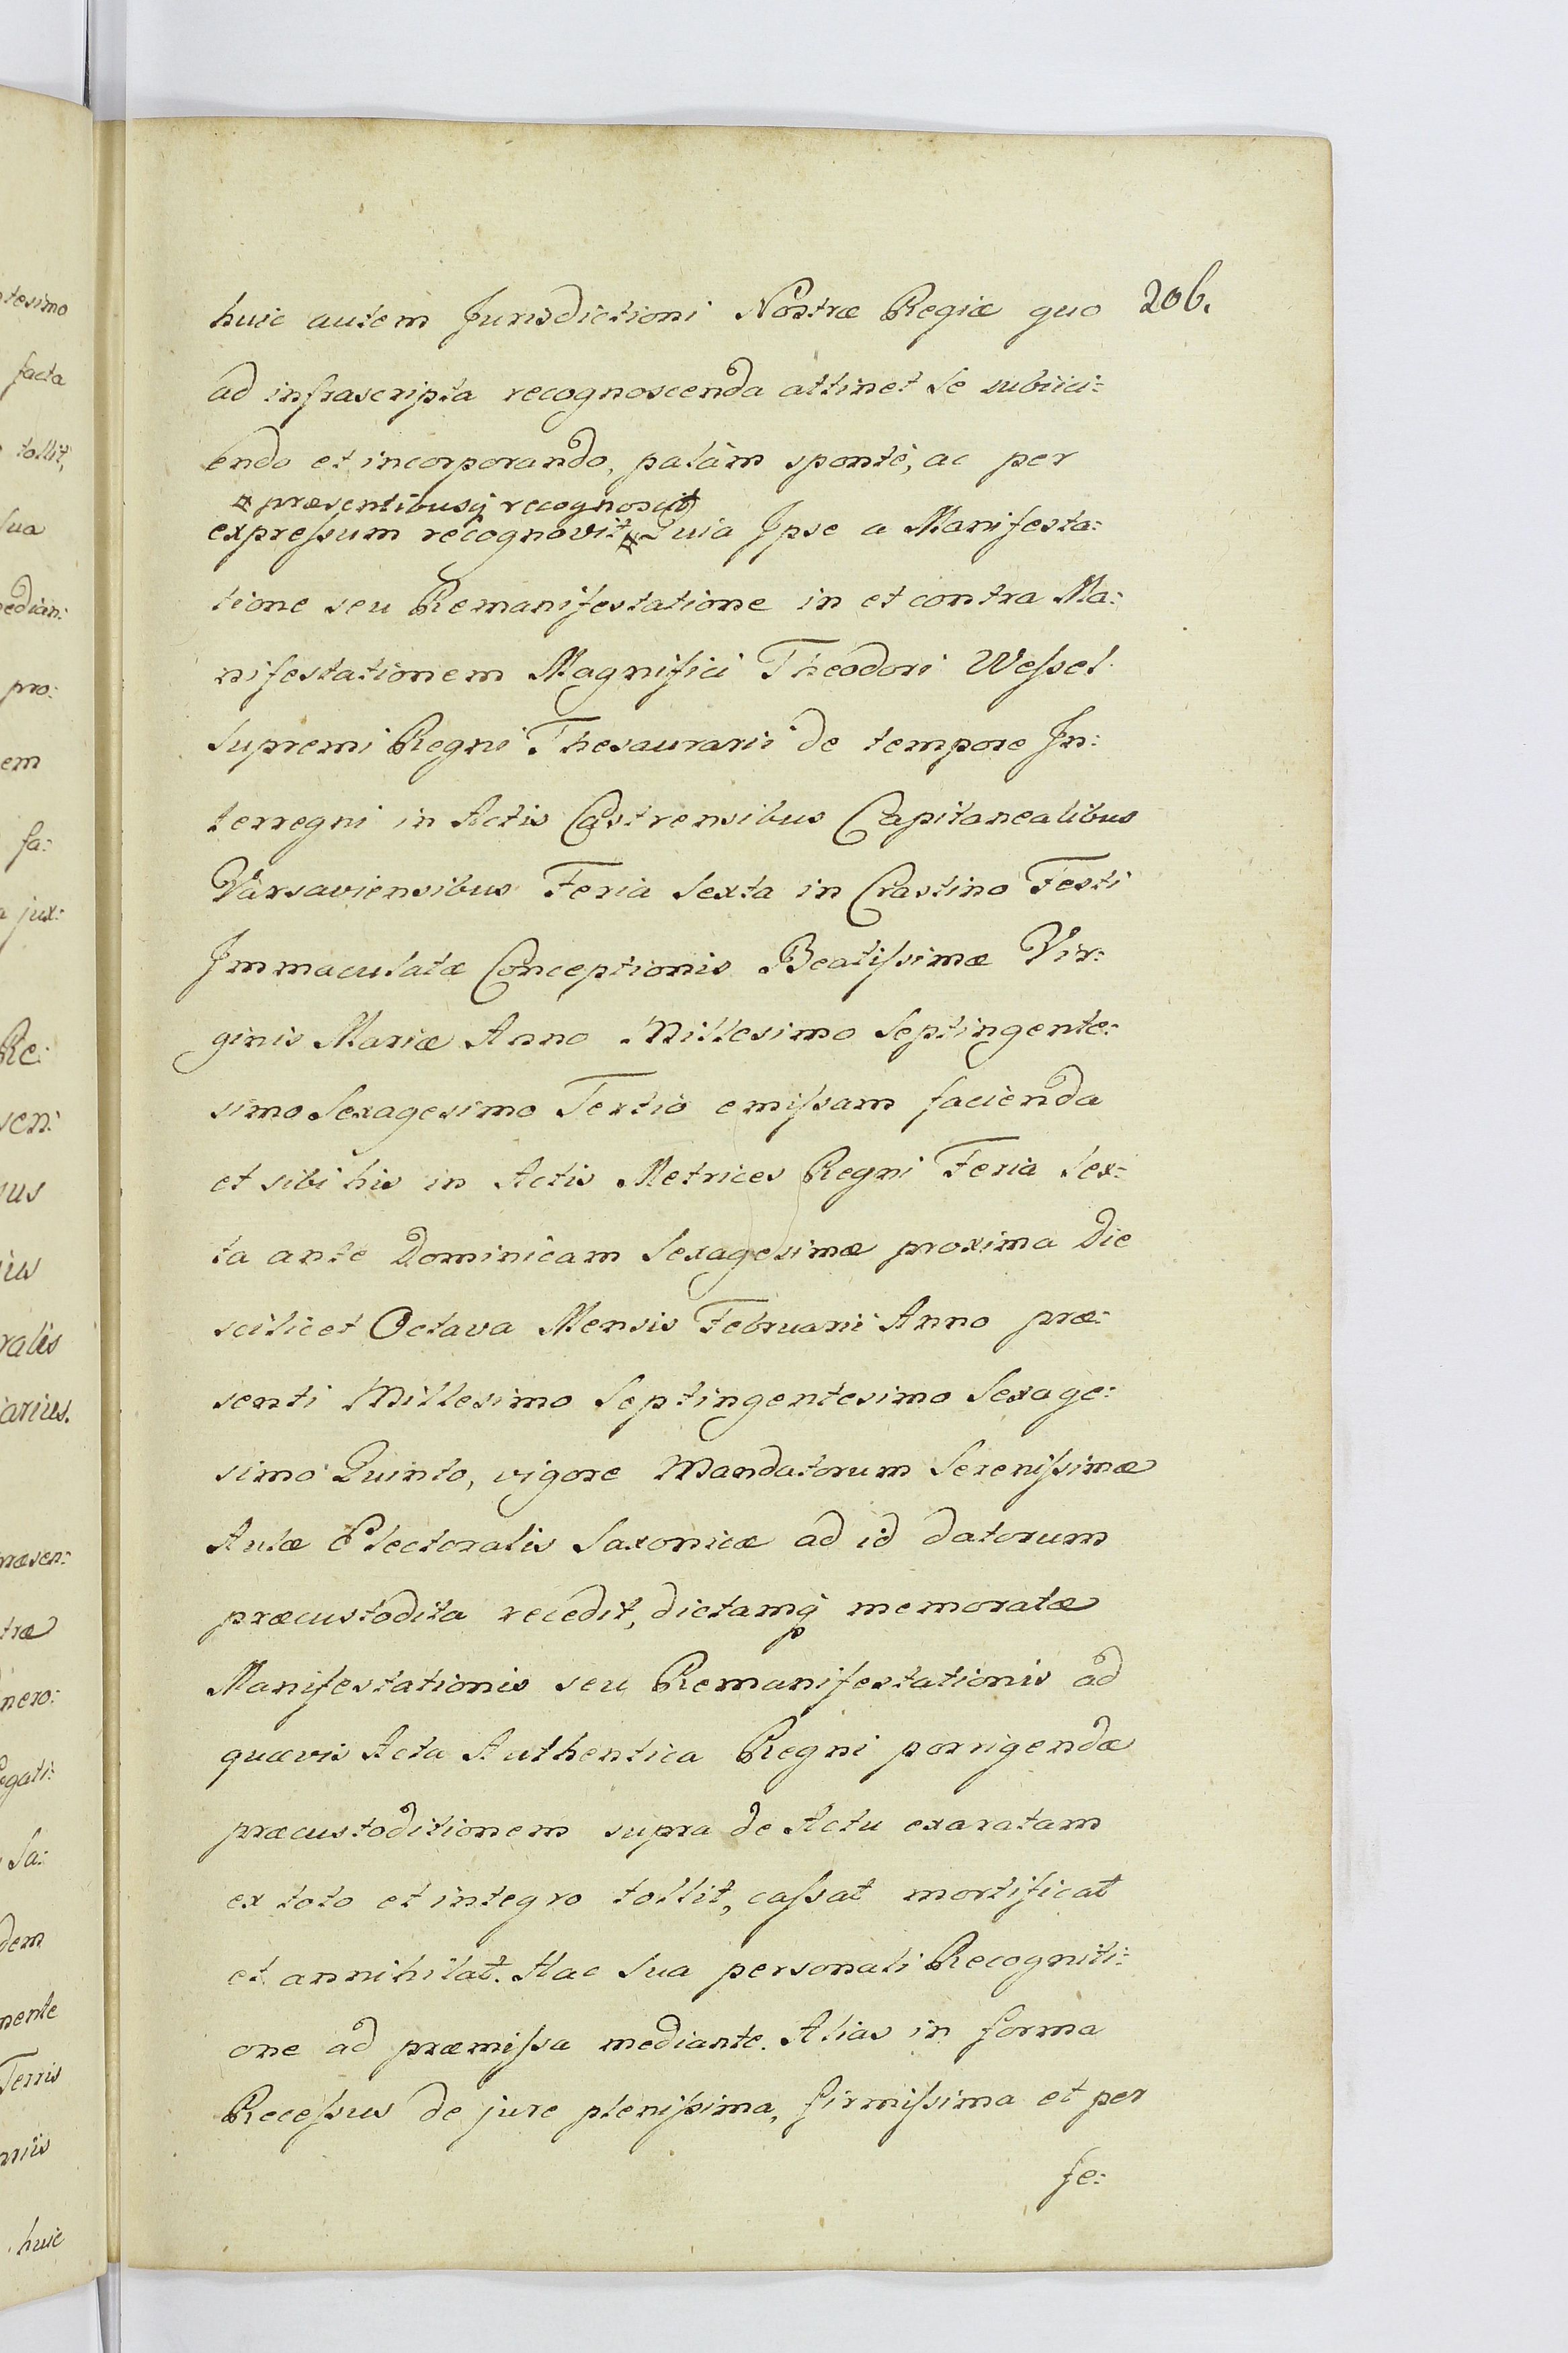 huic autem Jurisdictioni Nostræ Regiæ quo 206.
ad infrascripta recognoscenda attinet se subiici=
endo et incorporando, palàm spontè, ac per
¤ præsentibusq recognoscit
expressum recognovit ¤ Quia Ipse a Manifesta:
tione seu Remanifestatione in et contra Ma:
nifestationem Magnifici Theodori Wessel
Supremi Regni Thesaurarii de tempore In:
terregni in Actis Castrensibus Capitanealibus
Varsaviensibus Feria Sexta in Crastino Festi
Immaculatæ Conceptionis Beatissimæ Vir:
ginis Mariæ Anno Millesimo Septingente:
simo Sexagesimo Tertio emissam facienda
et sibi his in Actis Metrices Regni Feria Sex:
ta ante Dominicam Sexagesimæ proxima die
scilicet Octava Mensis Februarii Anno præ:
senti Millesimo Septingentesimo Sexage:
simo Quinto, vigore Mandatorum Serenissimæ
Aulæ Electoralis Saxonicæ ad id datorum
præcustodita recedit, dictamq memoratæ
Manifestationis seu Remanifestationis ad
quævis Acta Authentica Regni porrigendæ
præcustoditionem supra de Actu exaratam
ex toto et integro tollit, cassat mortificat
et annihilat. Hac Sua personali Recogniti:
one ad præmissa mediante. Alias in forma
Recessus de jure plenissima, firmissima et per
fe:
tesimo
facta
tollit,
sua
pro:
em
fa:
jux:
Re:
sen:
ius
ralis
arius.
ræsen:
træ
nero:
egati:
Sa:
dem
mente
Terris
huic